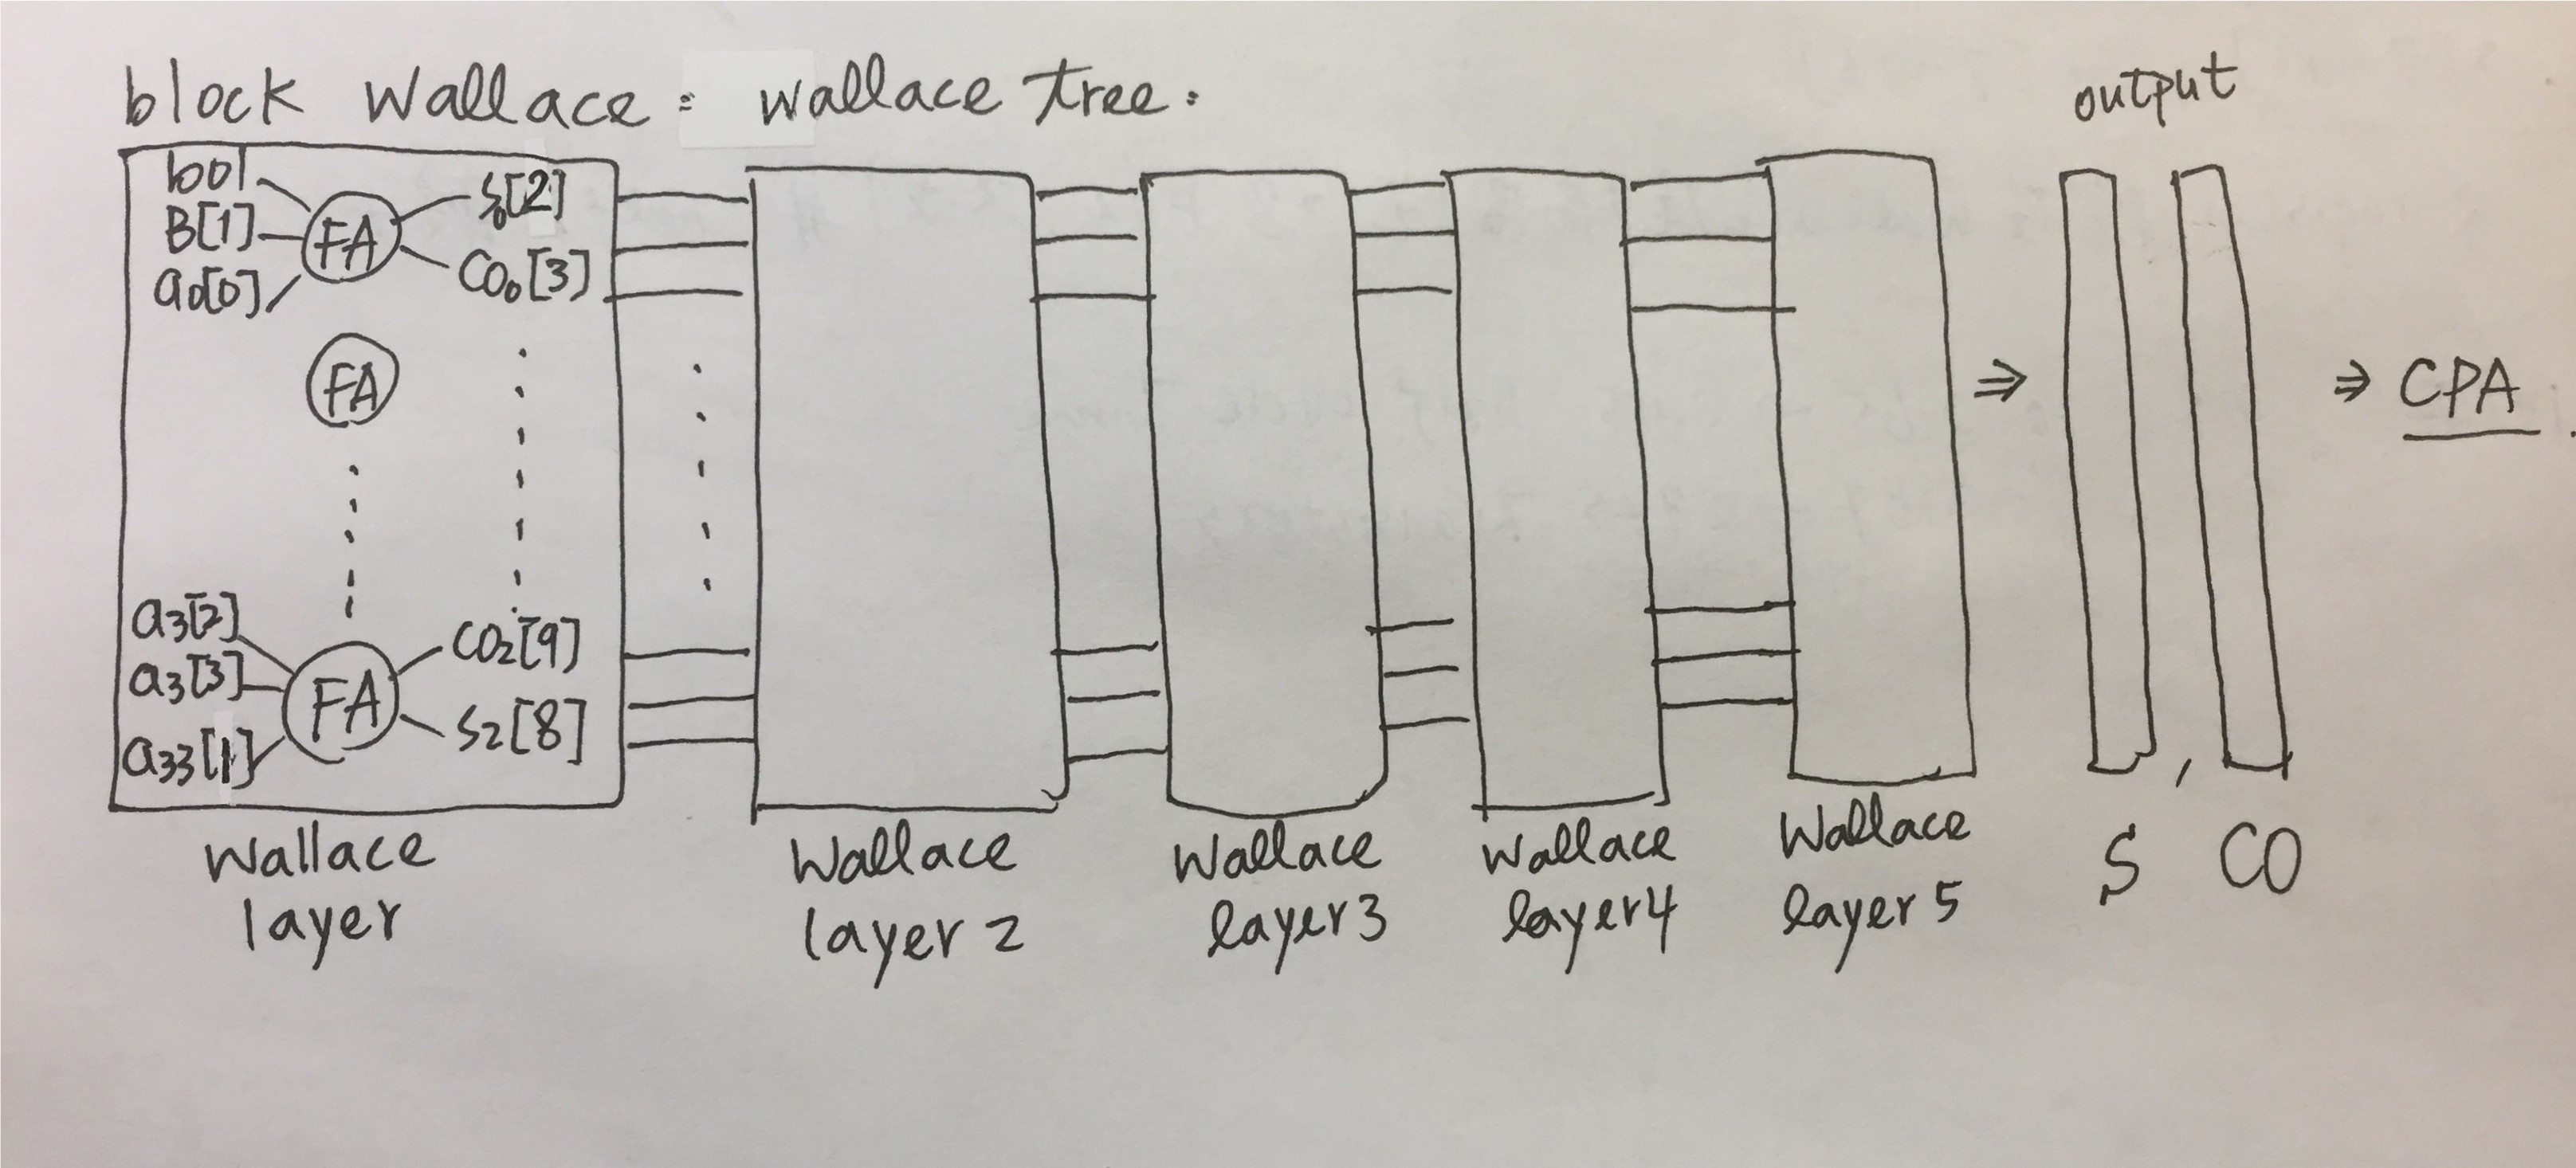 block Wallace : wallace tree .
output
b01
B[1]
a0[0]
FA
S0[2]
CO0[3]
FA
a3[2]
a3[3]
a33[1]
FA
CO2[9]
S2[8]
⇒
⇒ CPA .
S , CO
Wallace
layer
Wallace
layer 2
Wallace
layer3
Wallace
layer4
Wallace
layer 5